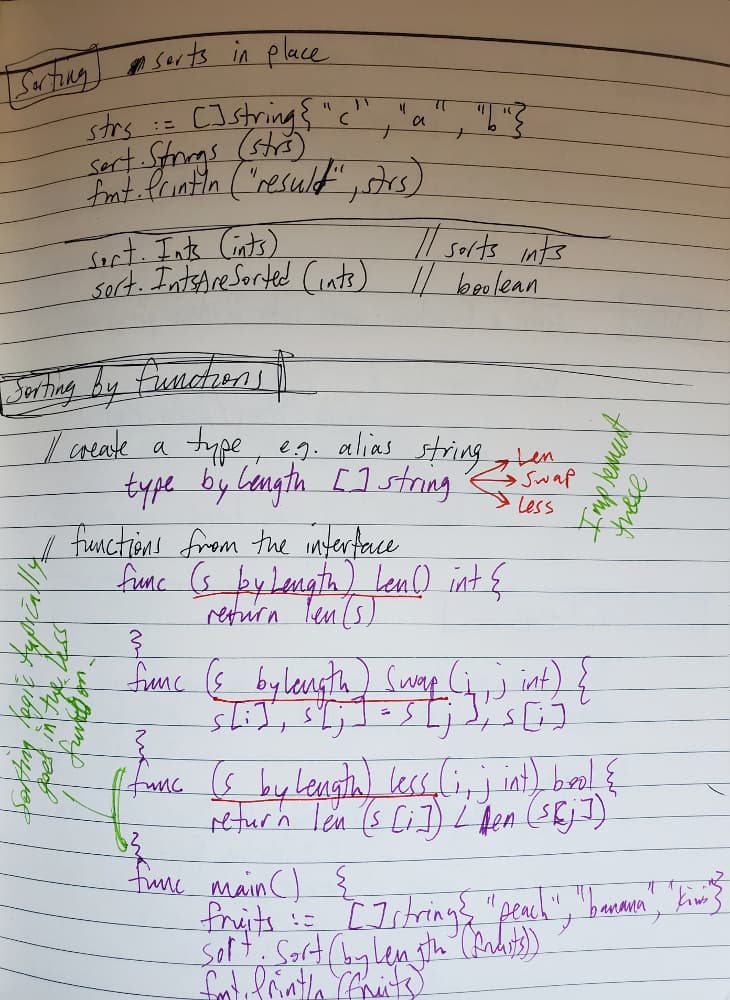 Sorting sorts in place
strs := []string{"c", "a", "b"}
sort.Strings (strs)
fmt.Println ("result", strs)
sort. Ints (ints) // sorts ints
sort. IntsAreSorted (ints) // boolean
Sorting by functions
// create a type, e.g. alias string
type byLength []string
Len
Swap
Less
Implement
these
// functions from the interface
func (s byLength) Len() int {
return len(s)
}
func (s bylength) Swap (i, j int) {
s[i], s[j] = s[j], s[i]
}
func (s byLength) less (i, j int) bool {
return len (s[i]) < len (s[j])
}
Sorting logic typically
goes in the less
function.
func main() {
fruits := []string{"peach", "banana", "kiwi"}
sort. Sort (byLength (fruits))
fmt. Println (fruits)